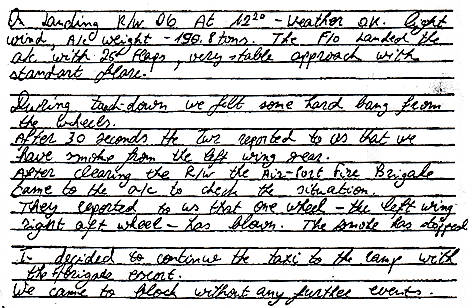 On landing R/W 06 At 12²⁰ - Weather OK. light
wind, A/C weight - 190.8 tons. The F/O landed the
a/c with 25° flaps, very stable approach with
standart flare.
During touch-down we felt some hard bang from
the wheels.
After 30 seconds the Twr reported to us that we
have smoke from the left wing rear.
After clearing the R/W the Air-Port Fire Brigade
came to the a/c to check the situation.
They reported to us that one wheel - the left wing
right aft wheel - has blown. The smoke has stopped
I decided to continue the taxi to the ramp with
the f/brigade escort.
We came to block without any further events.